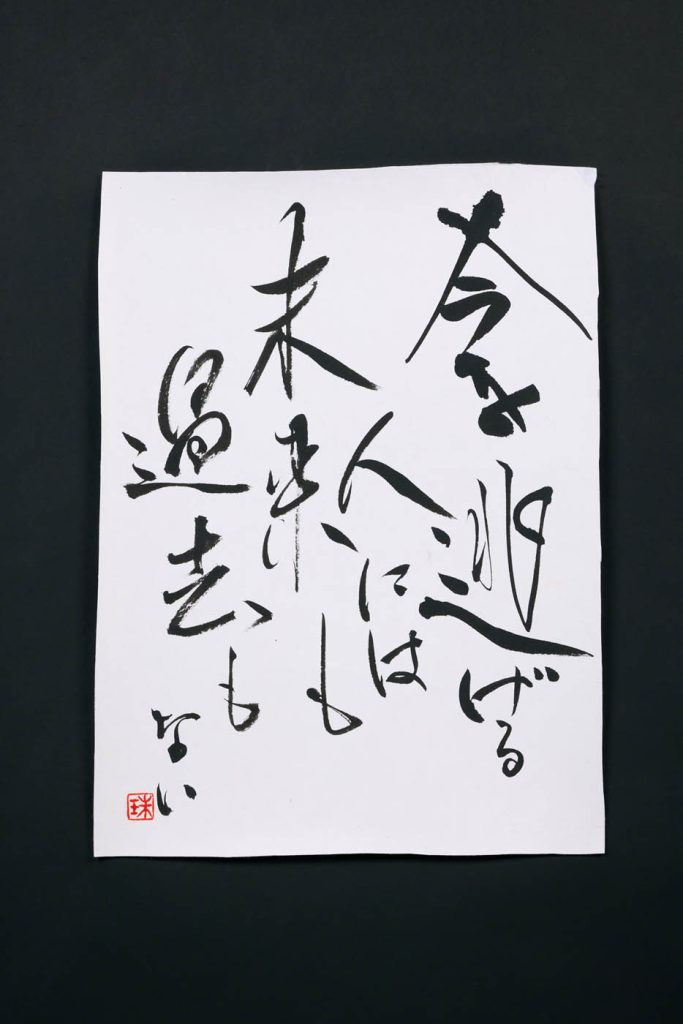 今を逃げる
人には
未来も
過去も
ない
珠